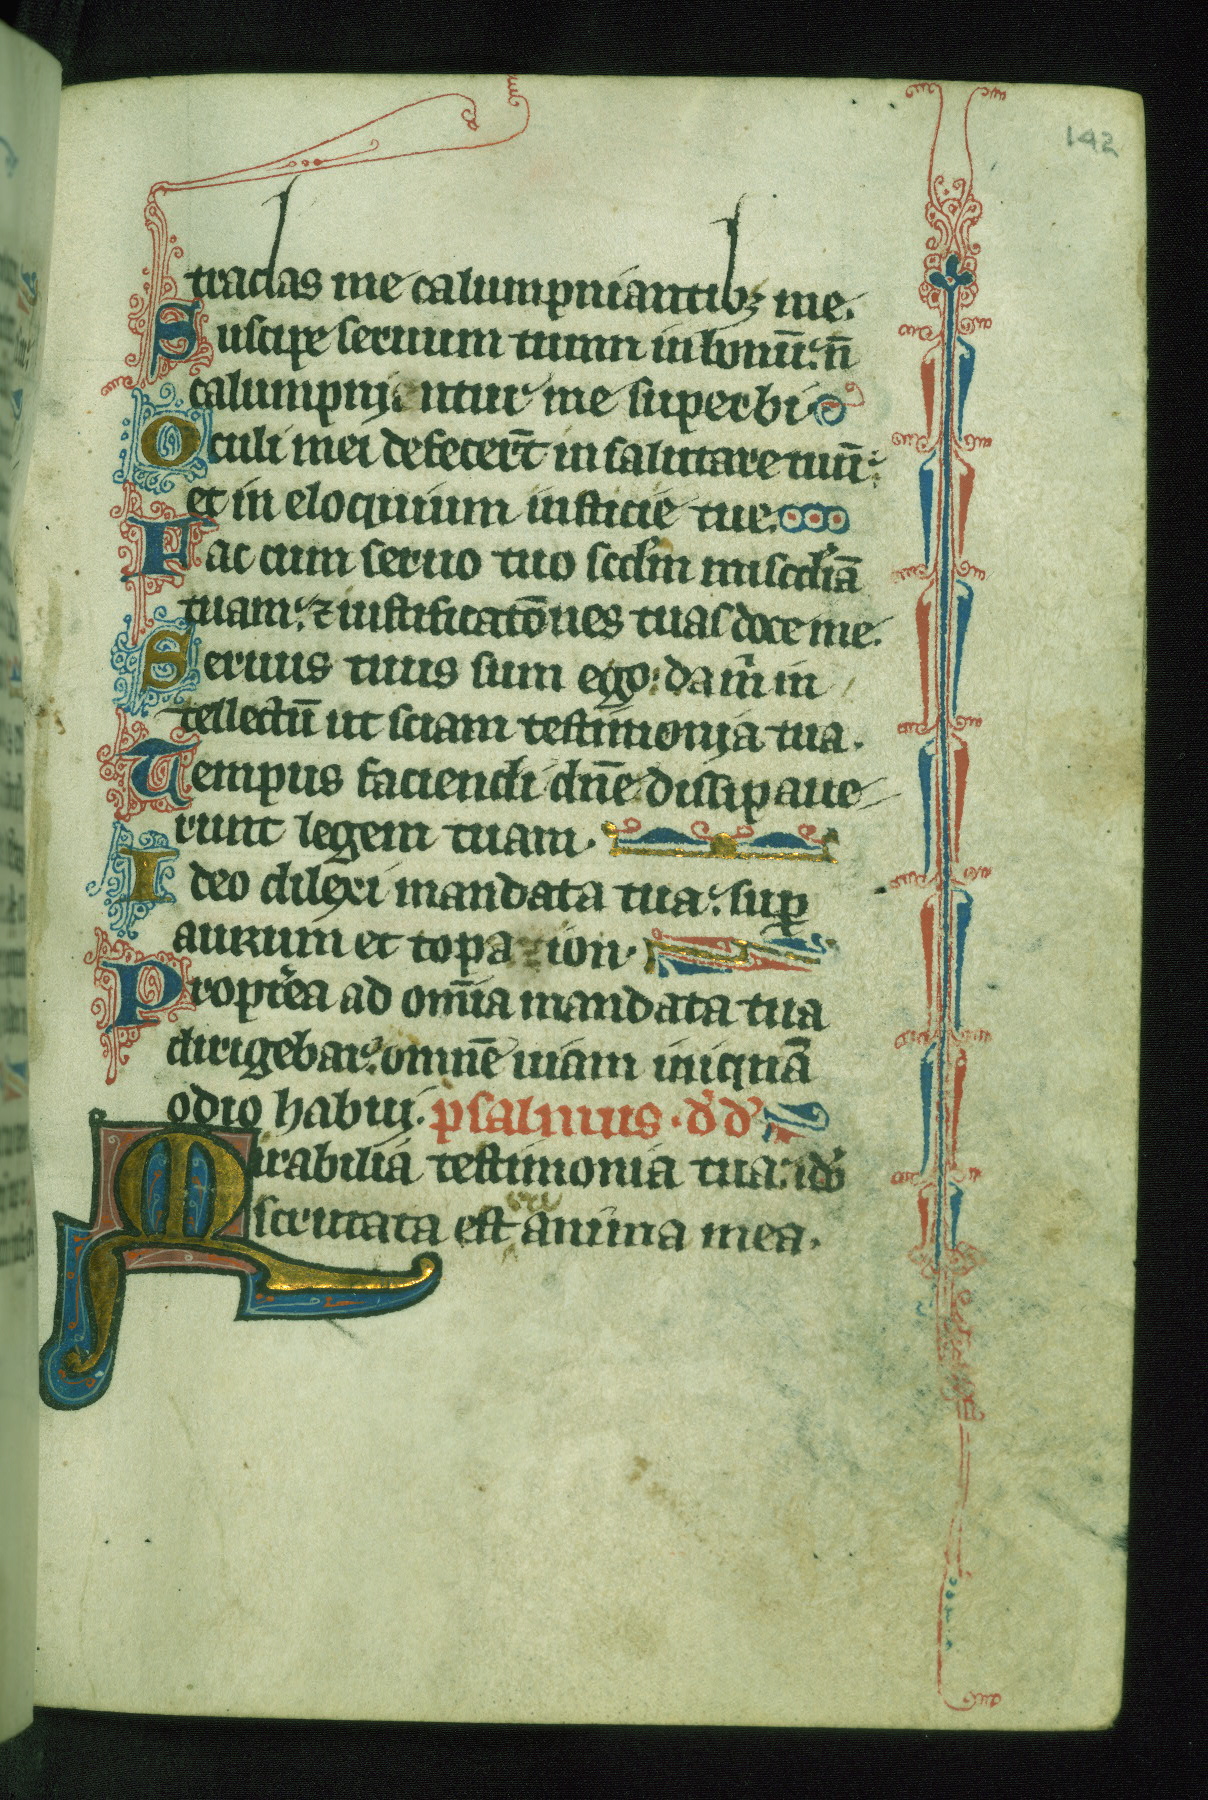 142
tradas me calumpniantibꝫ me.
Suscipe seruum tuum in bonũ: ñ
calumpnientur me superbi
Oculi mei defecer̃t in salutare tuũ:
et in eloquium iusticie tue.
Fac cum seruo tuo scđm miscđiã
tuam: ⁊ iustificatõnes tuas doce me.
Seruus tuus sum ego: da m̃ in
tellectũ ut sciam testimonia tua.
Tempus faciendi dñe dissipaue
runt legem tuam.
Ideo dilexi mandata tua: suꝑ
aurum et topazion.
Propt̃ea ad om̃ia mandata tua
dirigebar: omnẽ uiam iniquã
odio habui. psalmus . dd
Mirabilia testimonia tua: idõ
scrutata est anima mea.